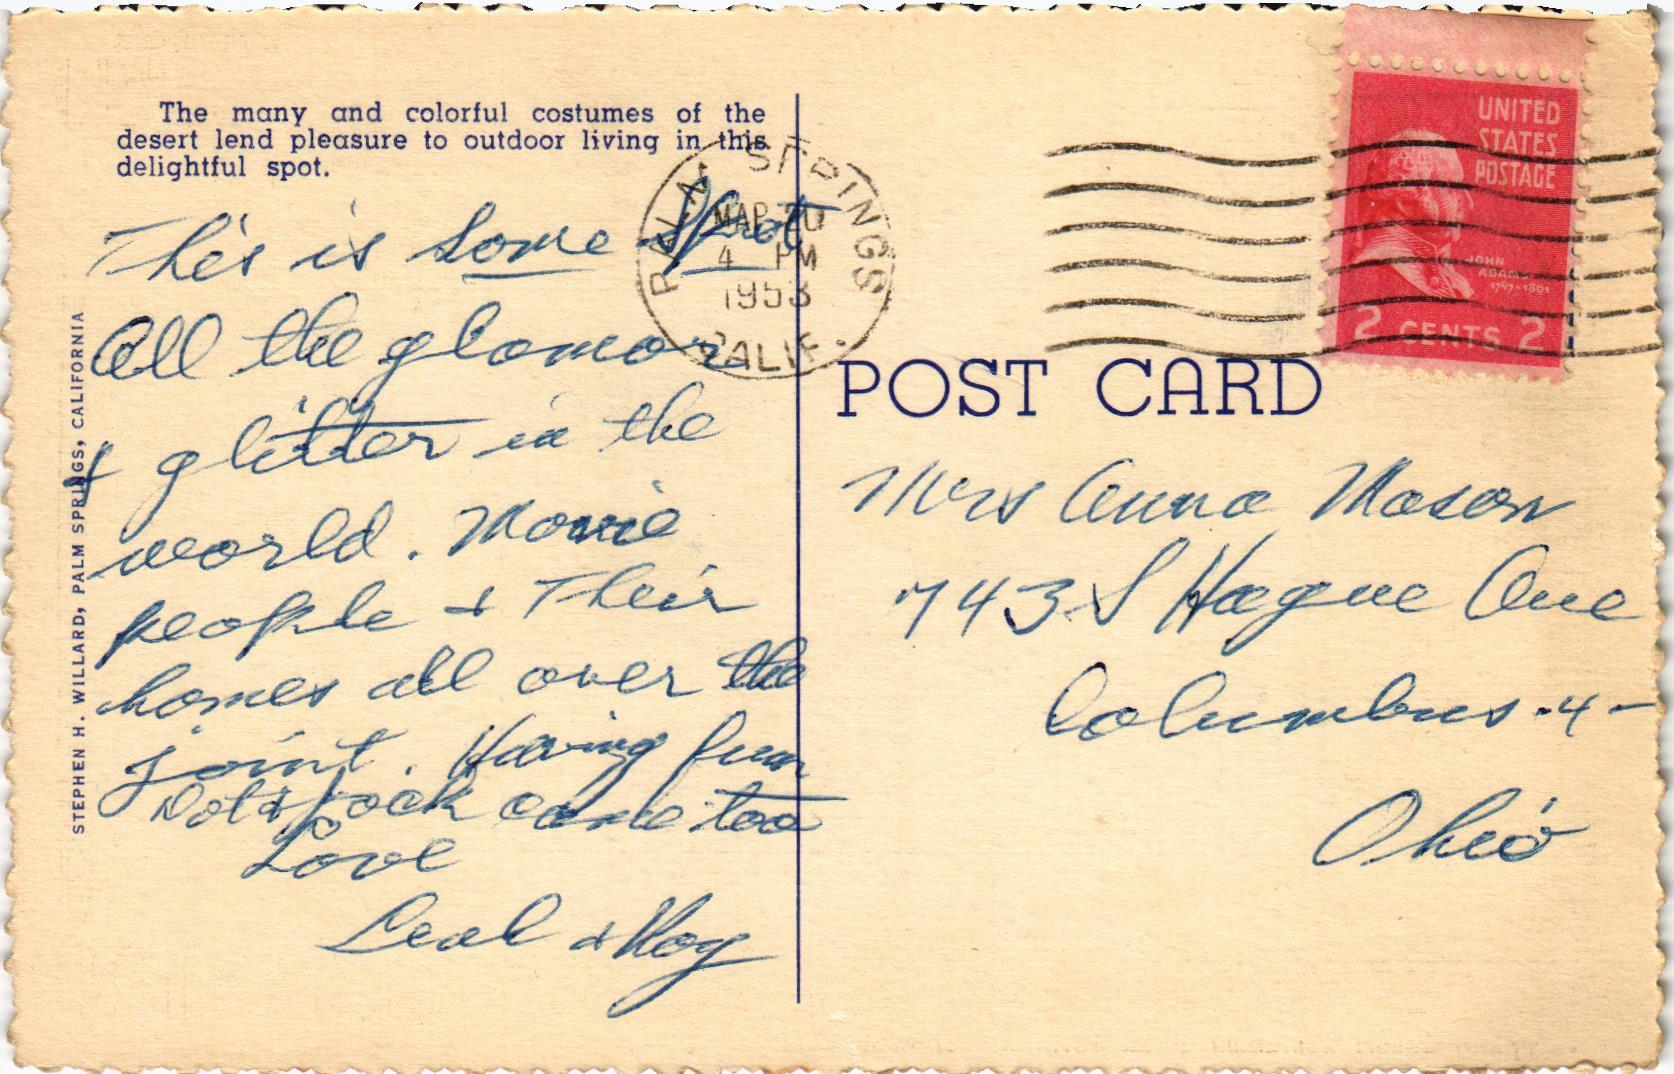 The many and colorful costumes of the
desert lend pleasure to outdoor living in this
delightful spot.
This is some spot
All the glamor
& glitter in the
world. Movie
people & Their
homes all over the
joint. Having fun
Dot & Jack came too
Love
Leal & Roy
STEPHEN H. WILLARD, PALM SPRINGS, CALIFORNIA
PALM SPRINGS
MAR 20
4 PM
1953
CALIF.
UNITED
STATES
POSTAGE
JOHN
ADAMS
1797-1801
2 CENTS 2
POST CARD
Mrs Anna Mason
743 S Hague Ave
Columbus -4-
Ohio